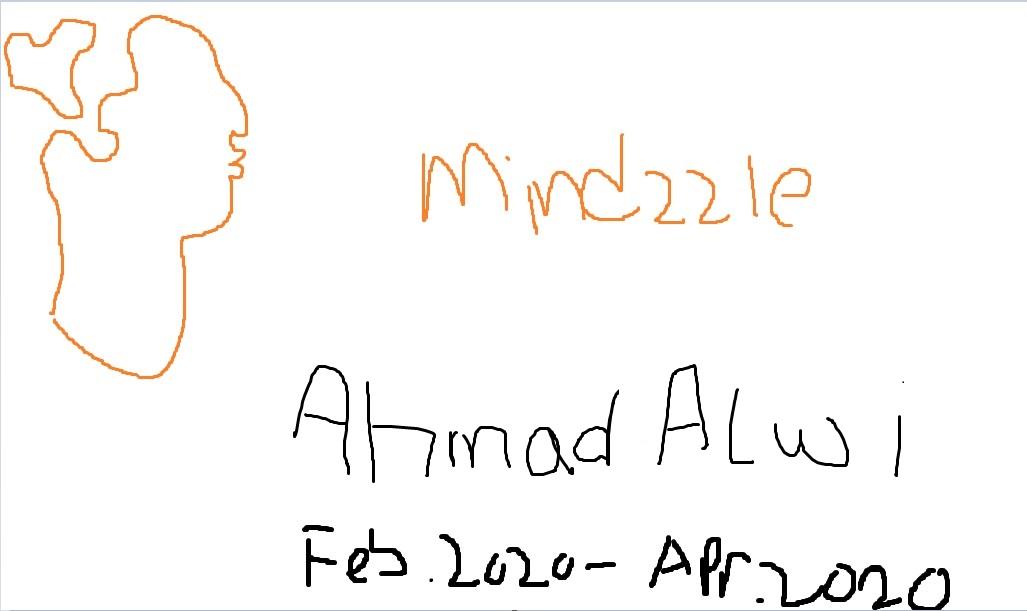 Mindzzle
Ahmad ALwi
Feb.2020- Apr.2020